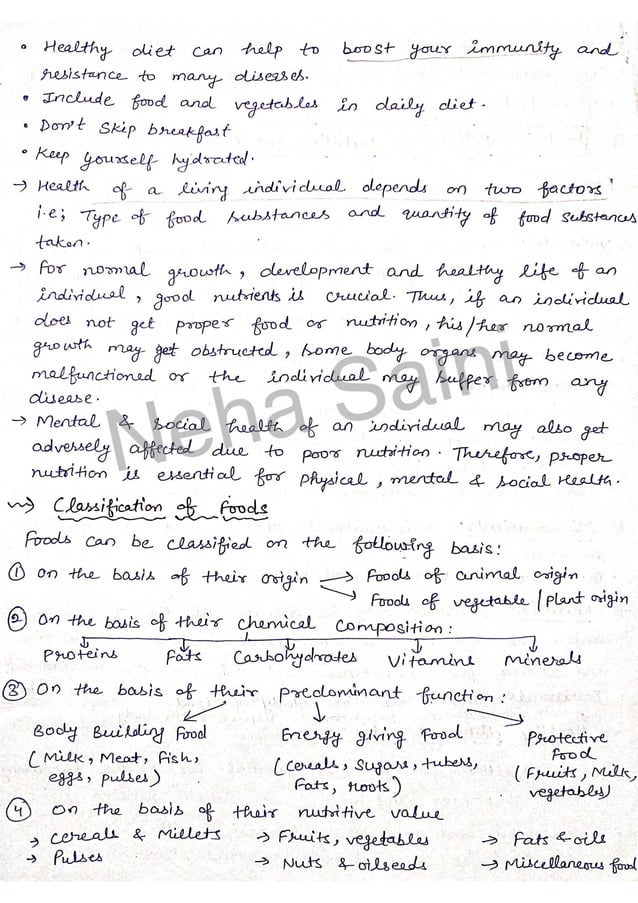 • Healthy diet can help to boost your immunity and
resistance to many diseases.
• Include food and vegetables in daily diet.
• Don't skip breakfast
• Keep yourself hydrated.
→ Health of a living individual depends on two factors
i.e; Type of food substances and quantity of food substances
taken.
→ For normal growth, development and healthy life of an
individual, good nutrients is crucial. Thus, if an individual
does not get proper food or nutrition, his/her normal
growth may get obstructed, some body organs may become
malfunctioned or the individual may suffer from any
disease.
→ Mental & social health of an individual may also get
adversely affected due to poor nutrition. Therefore, proper
nutrition is essential for physical, mental & social health.
Neha Saini
Classification of Foods
Foods can be classified on the following basis:
① On the basis of their origin → Foods of animal origin
→ Foods of vegetable / Plant origin
② On the basis of their chemical composition:
Proteins Fats Carbohydrates Vitamins Minerals
③ On the basis of their predominant function:
Body Building Food
(Milk, Meat, Fish,
eggs, pulses)
Energy giving Food
(cereals, sugars, tubers,
Fats, roots)
Protective
food
(Fruits, Milk,
vegetables)
④ On the basis of their nutritive value
→ Cereals & Millets → Fruits, vegetables → Fats & oils
→ Pulses → Nuts & oilseeds → Miscellaneous food